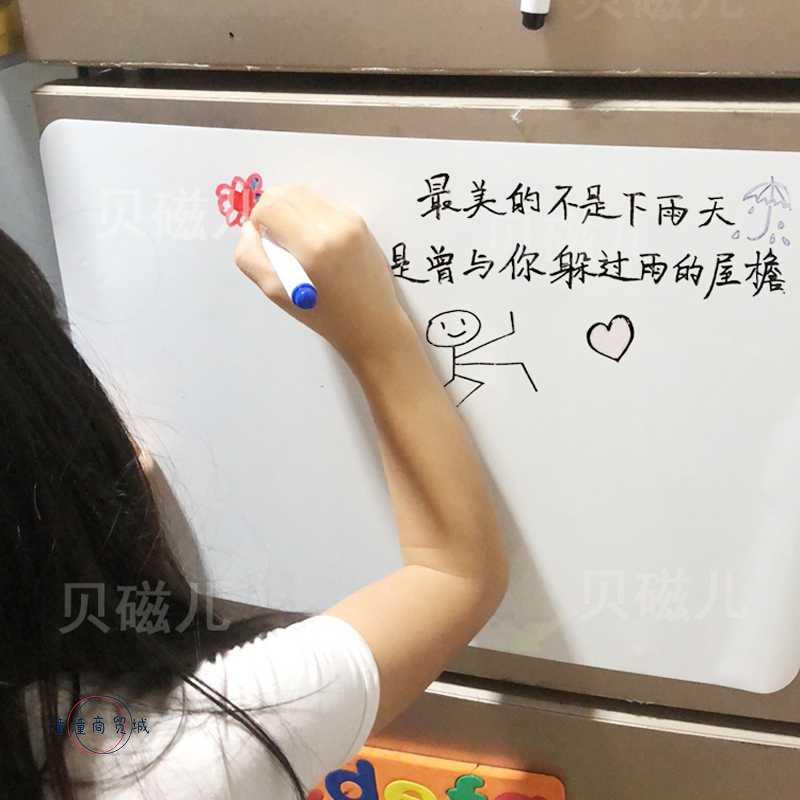 贝磁儿
最美的不是下雨天
是曾与你躲过雨的屋檐
贝磁儿
贝磁儿
贝磁儿
潼商贸城